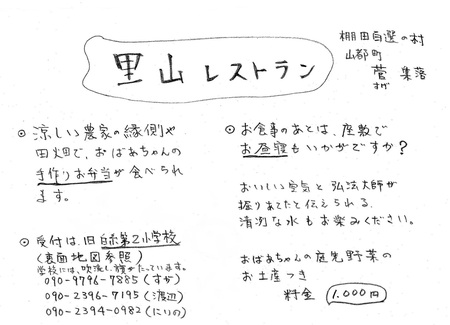 棚田自選の村
山都町
菅 集落
すげ
里山レストラン
◎ 涼しい農家の縁側や
田畑で、おばあちゃんの
手作りお弁当が食べられ
ます。
◎ 受付は、旧白糸第2小学校
(裏面地図参照)
学校には、吹流し旗がたっています。
090-9796-7885 (すが)
090-2396-7195 (渡辺)
090-2394-0982 (にいの)
◎ お食事のあとは、座敷で
お昼寝もいかがですか?
おいしい空気と弘法大師が
掘りあてたと伝えられる、
清冽な水もお楽みください。
おばあちゃんの庭先野菜の
お土産つき
料金 1.000円